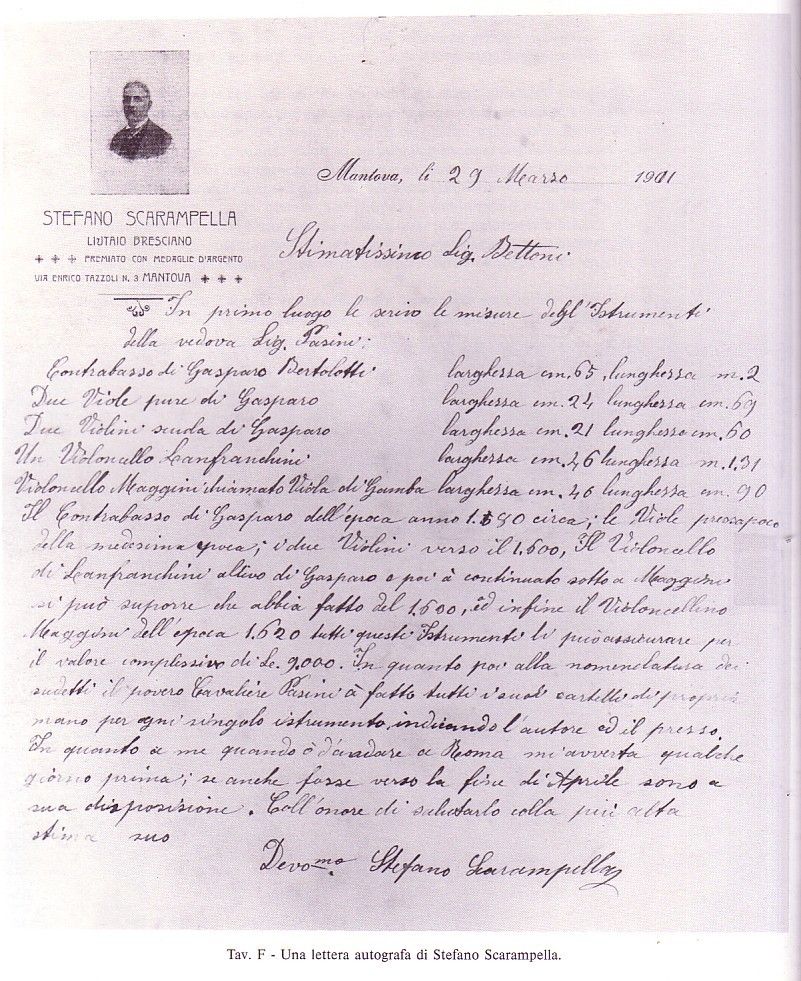 Mantova, li 29 Marzo 1911
STEFANO SCARAMPELLA
LIUTAIO BRESCIANO
PREMIATO CON MEDAGLIE D'ARGENTO
VIA ENRICO TAZZOLI N. 3 MANTOVA
Stimatissimo Sig. Bettoni
In primo luogo le scrivo le misure degl'Istrumenti
della vedova Sig. Pasini:
Contrabasso di Gasparo Bertolotti larghessa cm. 65, lunghessa m. 2
Due Viole pure di Gasparo larghessa cm. 24 lunghessa cm. 69
Due Violini scuola di Gasparo larghessa cm. 21 lunghesso cm. 60
Un Violoncello Lanfranchini larghessa cm. 46 lunghessa m. 1.31
Violoncello Maggini chiamato Viola di Gamba larghessa cm. 46 lunghessa cm. 90
Il Contrabasso di Gasparo dell'epoca anno 1.580 circa; le Viole pressapoco
della medesima epoca; i due Violini verso il 1.600, Il Violoncello
di Lanfranchini allivo di Gasparo e poi à continuato sotto a Maggini
si può suporre che abbia fatto del 1.600, ed infine il Violoncellino
Maggini dell'epoca 1.620 tutti questi Istrumenti li può assicurare per
il valore complessivo di L. 9,000. In quanto poi alla nomenclatura dei
sudetti il povero Cavaliere Pasini à fatto tutti i suoi cartelli di propria
mano per ogni singolo istrumento, indicando l'autore ed il presso.
In quanto a me quando ò d'andare a Roma mi avverta qualche
giorno prima; se anche fosse verso la fine di Aprile sono a
sua disposisione. Coll'onore di salutarlo colla più alta
stima suo
Devomo. Stefano Scarampella
Tav. F - Una lettera autografa di Stefano Scarampella.